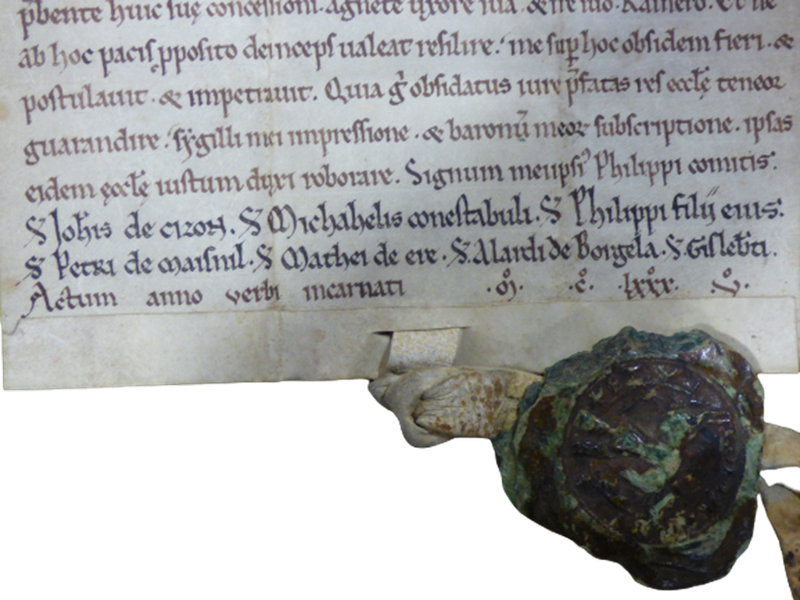 p̄bente huic suę concessioni. agnete uxore sua. & fr̄e suo. Rainero. Et ne
ab hoc pacis ꝓposito deinceps ualeat resilire. me sup̱ hoc obsidem fieri. &
postulauit. & impetrauit. Quia g̊ obsidatus iure p̄fatas res ęccłę teneor
guarandire. sygilli mei impressione. & baronū meoꝝ subscriptione. ipsas
eidem ęccłę iustum duxi roborare. Signum meiipsi᾽ Philippi comitis.
S Joh̄is de cizon. S Michahelis conestabuli. S Philippi filii eius.
S Petri de maisnil. S Mathei de eie. S. Alardi de Borgela. S. Gislebti.
Actum anno verbi incarnati .m̊. .c̊. lxxx̊. v̊.